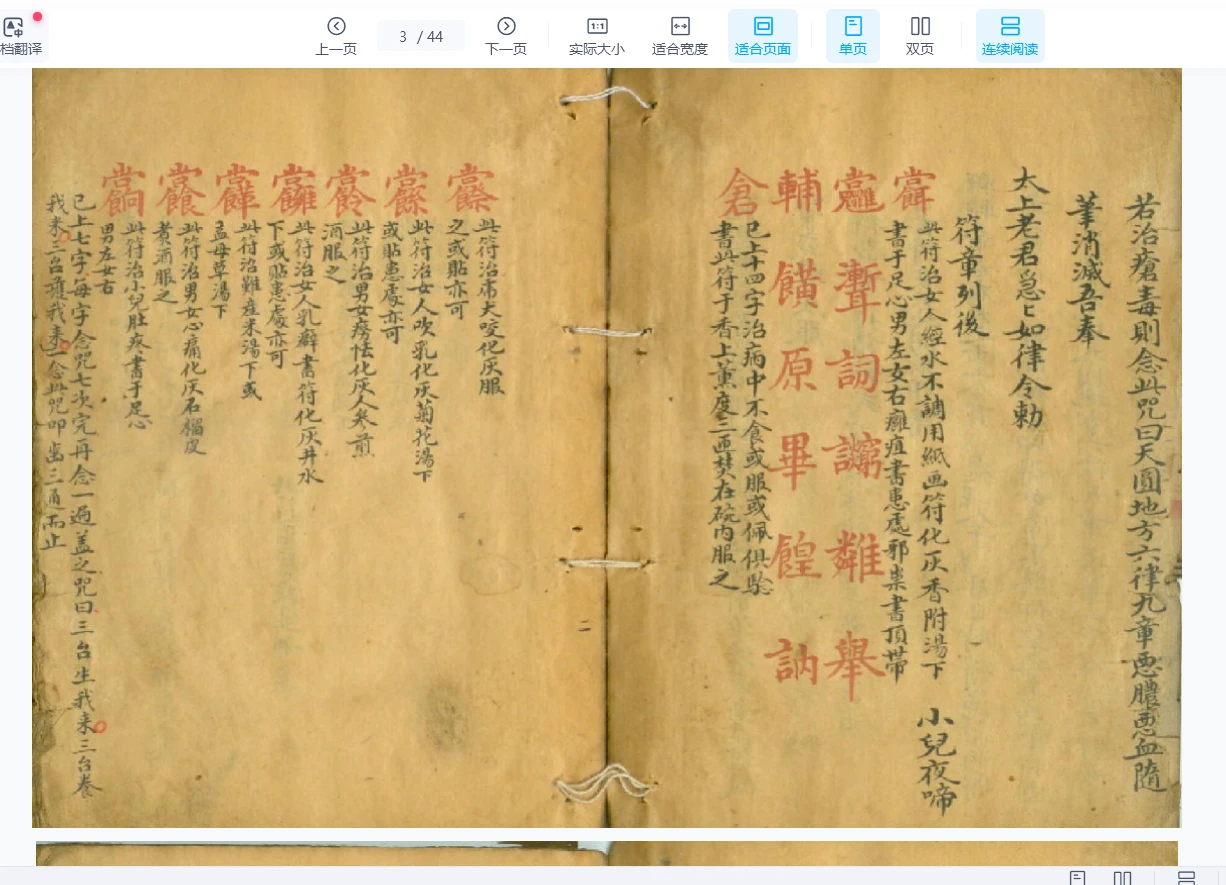 档翻译
上一页
3 / 44
下一页
1:1
实际大小
适合宽度
适合页面
单页
双页
连续阅读
若治瘡毒則念此咒曰天圓地方六律九章悪膿悪血隨
筆消滅吾奉
太上老君急〻如律令勅
符章列後
此符治女人經水不調用紙画符化灰香附湯下 小兒夜啼
書于足心男左女右癰疽書患處邪祟書頂帶
詞 舉
輔 原 畢 餭 訥
倉
已上十四字治病中不食或服或佩俱驗
書此符于香上薰度三匝焚在碗内服之
二
此符治瘋犬咬化灰服
之或貼亦可
此符治女人吹乳化灰菊花湯下
或貼患處亦可
此符治男女癆怯化灰人参煎
酒服之
此符治女人乳癖書符化灰井水
下或貼患處亦可
此符治難産米湯下或
益母草湯下
此符治男女心痛化灰石榴皮
煮酒服之
此符治小兒肚疼書于足心
男左女右
已上七字每字念咒七次完再念一遍盖之咒曰三台生我来三台養
我来三台護我来一念此咒叩齒三通而止